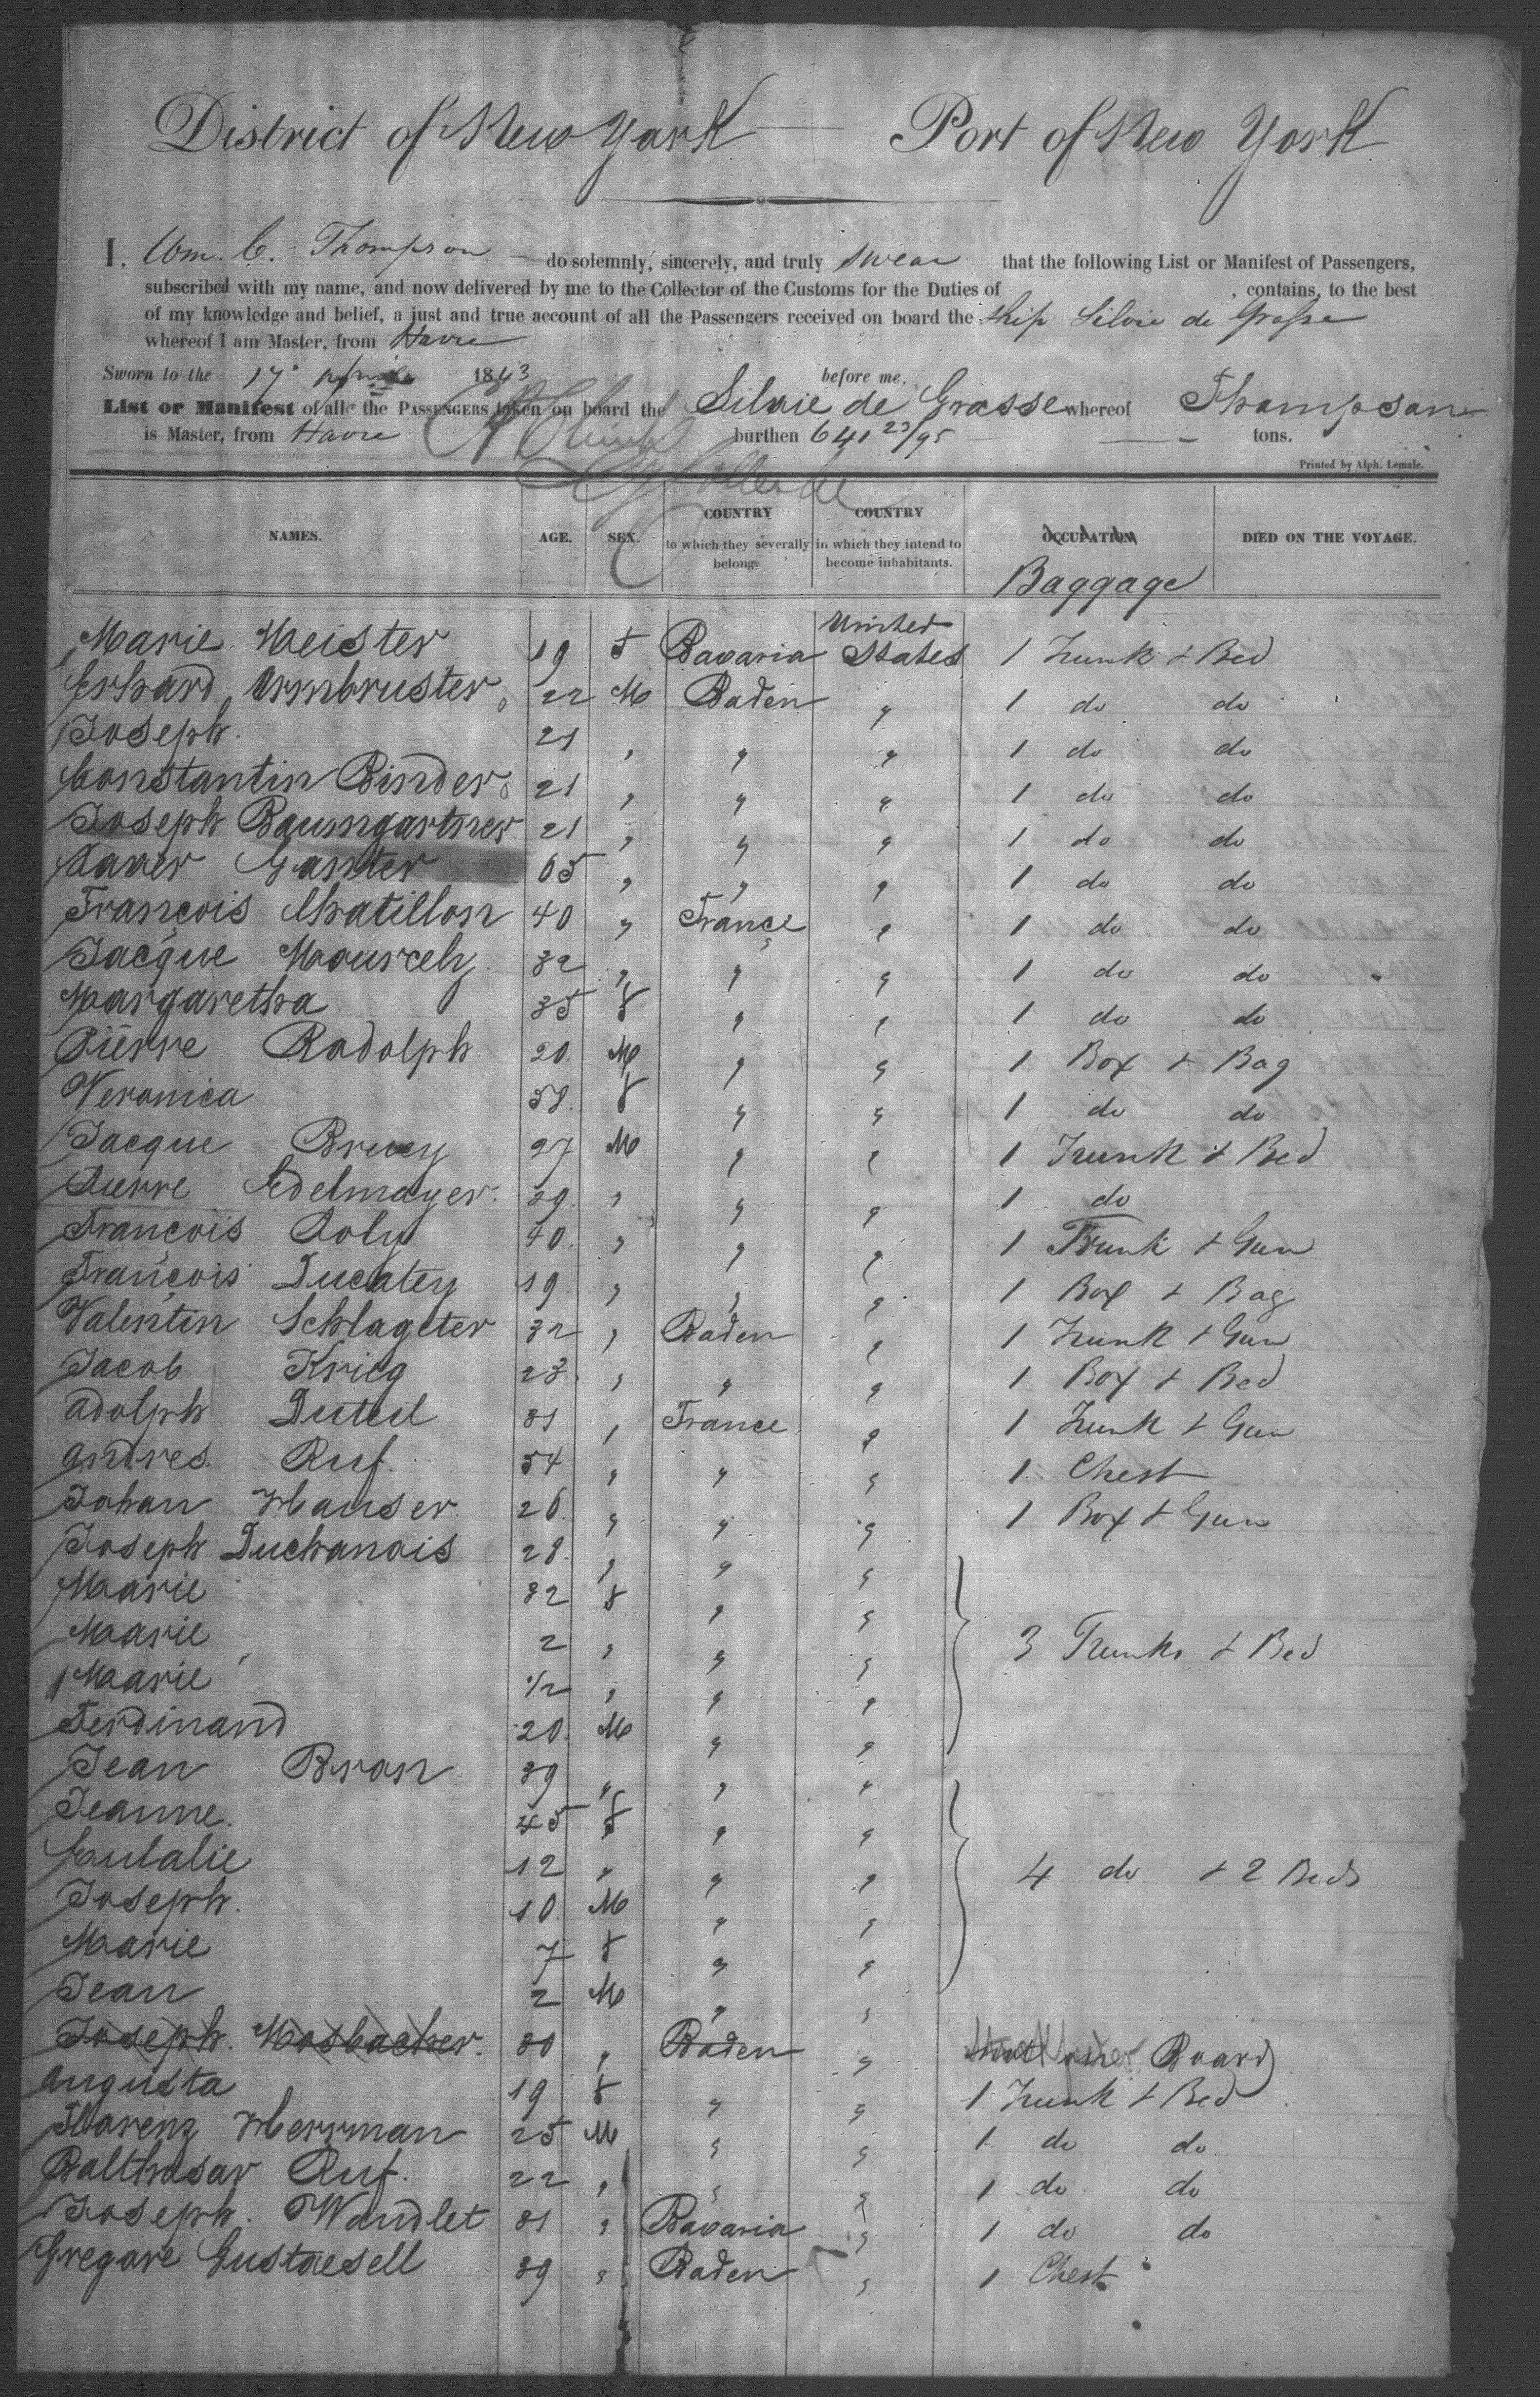 District of New York — Port of New York
I, Wm. C. Thompson do solemnly, sincerely, and truly swear that the following List or Manifest of Passengers,
subscribed with my name, and now delivered by me to the Collector of the Customs for the Duties of , contains, to the best
of my knowledge and belief, a just and true account of all the Passengers received on board the Ship Silvie de Grasse
whereof I am Master, from Havre
Sworn to the 17 April 1843 before me,
List or Manifest of all the PASSENGERS taken on board the Silvie de Grasse whereof Thompson
is Master, from Havre burthen 641 23/95 tons.
Printed by Alph. Lemale.
NAMES. AGE. SEX. COUNTRY to which they severally belong. COUNTRY in which they intend to become inhabitants. OCCUPATION DIED ON THE VOYAGE.
Baggage
Marie Meister 19 f Bavaria United States 1 Trunk + Bed
Erhard Armbruster 22 M Baden " 1 do do
Joseph. 21 " " " 1 do do
Constantin Binder 21 " " " 1 do do
Joseph Baumgartner 21 " " " 1 do do
Xaver Ganter 65 " " " 1 do do
François Chatillon 40 " France " 1 do do
Jacque Mourcely 32 " " " 1 do do
Margaretha 35 f " " 1 do do
Pierre Rodolph 20. M " " 1 Box + Bag
Veronica 58. f " " 1 do do
Jacque Bruey 27 M " " 1 Trunk + Bed
Pierre Edelmayer. 29. " " " 1 do
François Roly 40. " " " 1 Trunk + Gun
François Duchatey 19. " " " 1 Box + Bag
Valentin Schlageter 32 " Baden " 1 Trunk + Gun
Jacob Krieg 23. " " " 1 Box + Bed
Adolph Duteil 31 " France " 1 Trunk + Gun
Andres Ruf. 54 " " " 1 Chest
Johan Hauser. 26. " " " 1 Box + Gun
Joseph Duchanois 28. " " "
Marie 32 f " "
Marie 2 " " " 3 Trunks + Bed
Marie 1/2 " " "
Ferdinand 20. M " "
Jean Bron 39 " " "
Jeanne. 45 f " "
Eulalie 12 " " " 4 do + 2 Beds
Joseph. 10. M " "
Marie 7 f " "
Jean 2 M " "
Joseph. Mosbacher. 30 " Baden " Board
Augusta 19 f " " 1 Trunk + Bed
Florenz Herrman 25 M " " 1 do do
Balthasar Ruf. 22 " " " 1 do do
Joseph. Wandlet 31 " Bavaria " 1 do do
Gregore Gustaesell 39 " Baden " 1 Chest